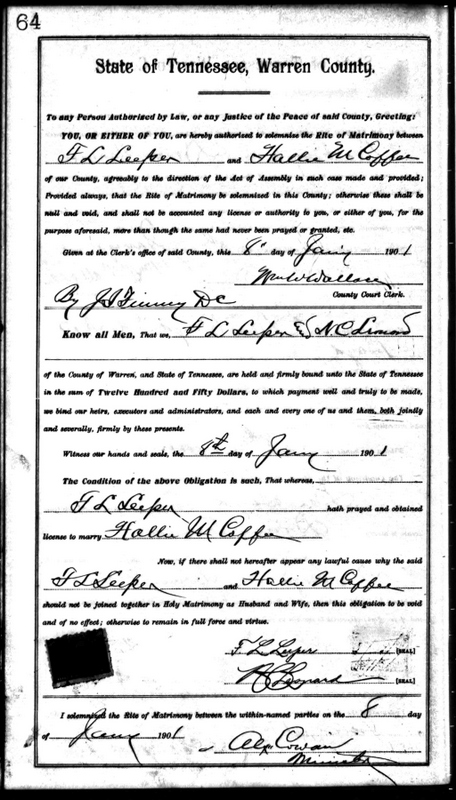 64
State of Tennessee, Warren County.
To any Person Authorised by Law, or any Justice of the Peace of said County, Greeting:
YOU, OR EITHER OF YOU, are hereby authorised to solemnize the Rite of Matrimony between
F L Leeper and Hallie McCoffee
of our County, agreeably to the direction of the Act of Assembly in such case made and provided;
Provided always, that the Rite of Matrimony be solemnized in this County; otherwise these shall be
null and void, and shall not be accounted any license or authority to you, or either of you, for the
purpose aforesaid, more than though the same had never been prayed or granted, etc.
Given at the Clerk's office of said County, this 8 day of Jany 1901
Wm W Wallace
By J D C
County Court Clerk.
Know all Men, That we, F L Leeper & N C
of the County of Warren, and State of Tennessee, are held and firmly bound unto the State of Tennessee
in the sum of Twelve Hundred and Fifty Dollars, to which payment well and truly to be made,
we bind our heirs, executors and administrators, and each and every one of us and them, both jointly
and severally, firmly by these presents.
Witness our hands and seals, the 8th day of Jany 1901
The Condition of the above Obligation is such, That whereas,
F L Leeper hath prayed and obtained
license to marry Hallie McCoffee
Now, if there shall not hereafter appear any lawful cause why the said
F L Leeper and Hallie McCoffee
should not be joined together in Holy Matrimony as Husband and Wife, then this obligation to be void
and of no effect; otherwise to remain in full force and virtue.
F L Leeper [SEAL]
[SEAL]
I solemnized the Rite of Matrimony between the within-named parties on the 8 day
of Jany 1901
Alx Cowan
Minister